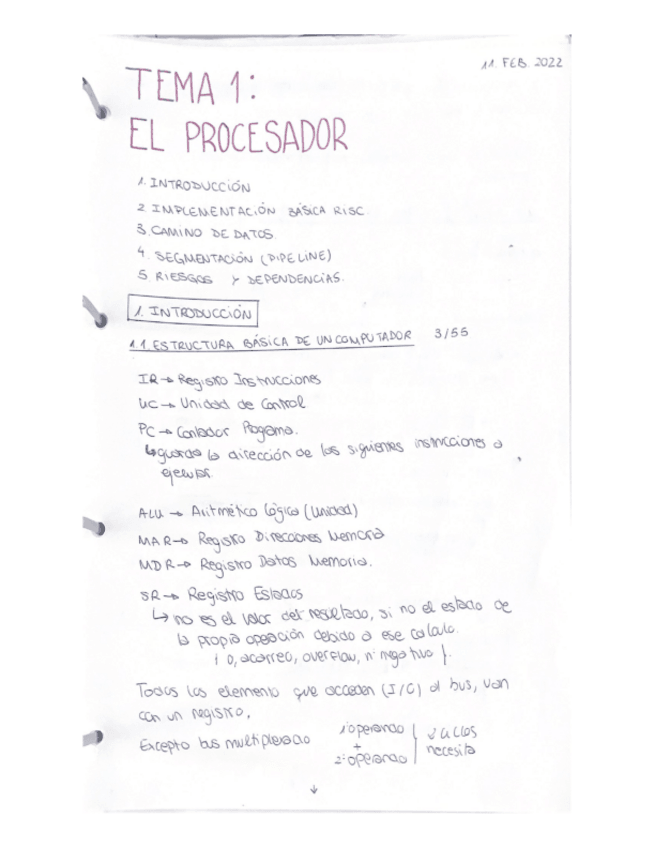 11. FEB. 2022
TEMA 1:
EL PROCESADOR
1. INTRODUCCIÓN
2. IMPLEMENTACIÓN BÁSICA RISC
3. CAMINO DE DATOS.
4. SEGMENTACIÓN (PIPELINE)
5. RIESGOS Y DEPENDENCIAS.
1. INTRODUCCIÓN
1.1. ESTRUCTURA BÁSICA DE UN COMPUTADOR 3/55
IR → Registro Instrucciones
UC → Unidad de Control
PC → Contador Programa.
↳ guarda la dirección de las siguientes instrucciones a
ejecutar.
ALU → Aritmético Lógica (Unidad)
MAR → Registro Direcciones Memoria
MDR → Registro Datos Memoria.
SR → Registro Estados
↳ no es el valor del resultado, si no el estado de
la propia operación debido a ese calculo.
{ 0, acarreo, overflow, nº negativo }.
Todos los elemento que acceden (I/O) al bus, van
con un registro.
Excepto bus multiplexado 1º operando + 2º operando } 2 ciclos necesita
↓